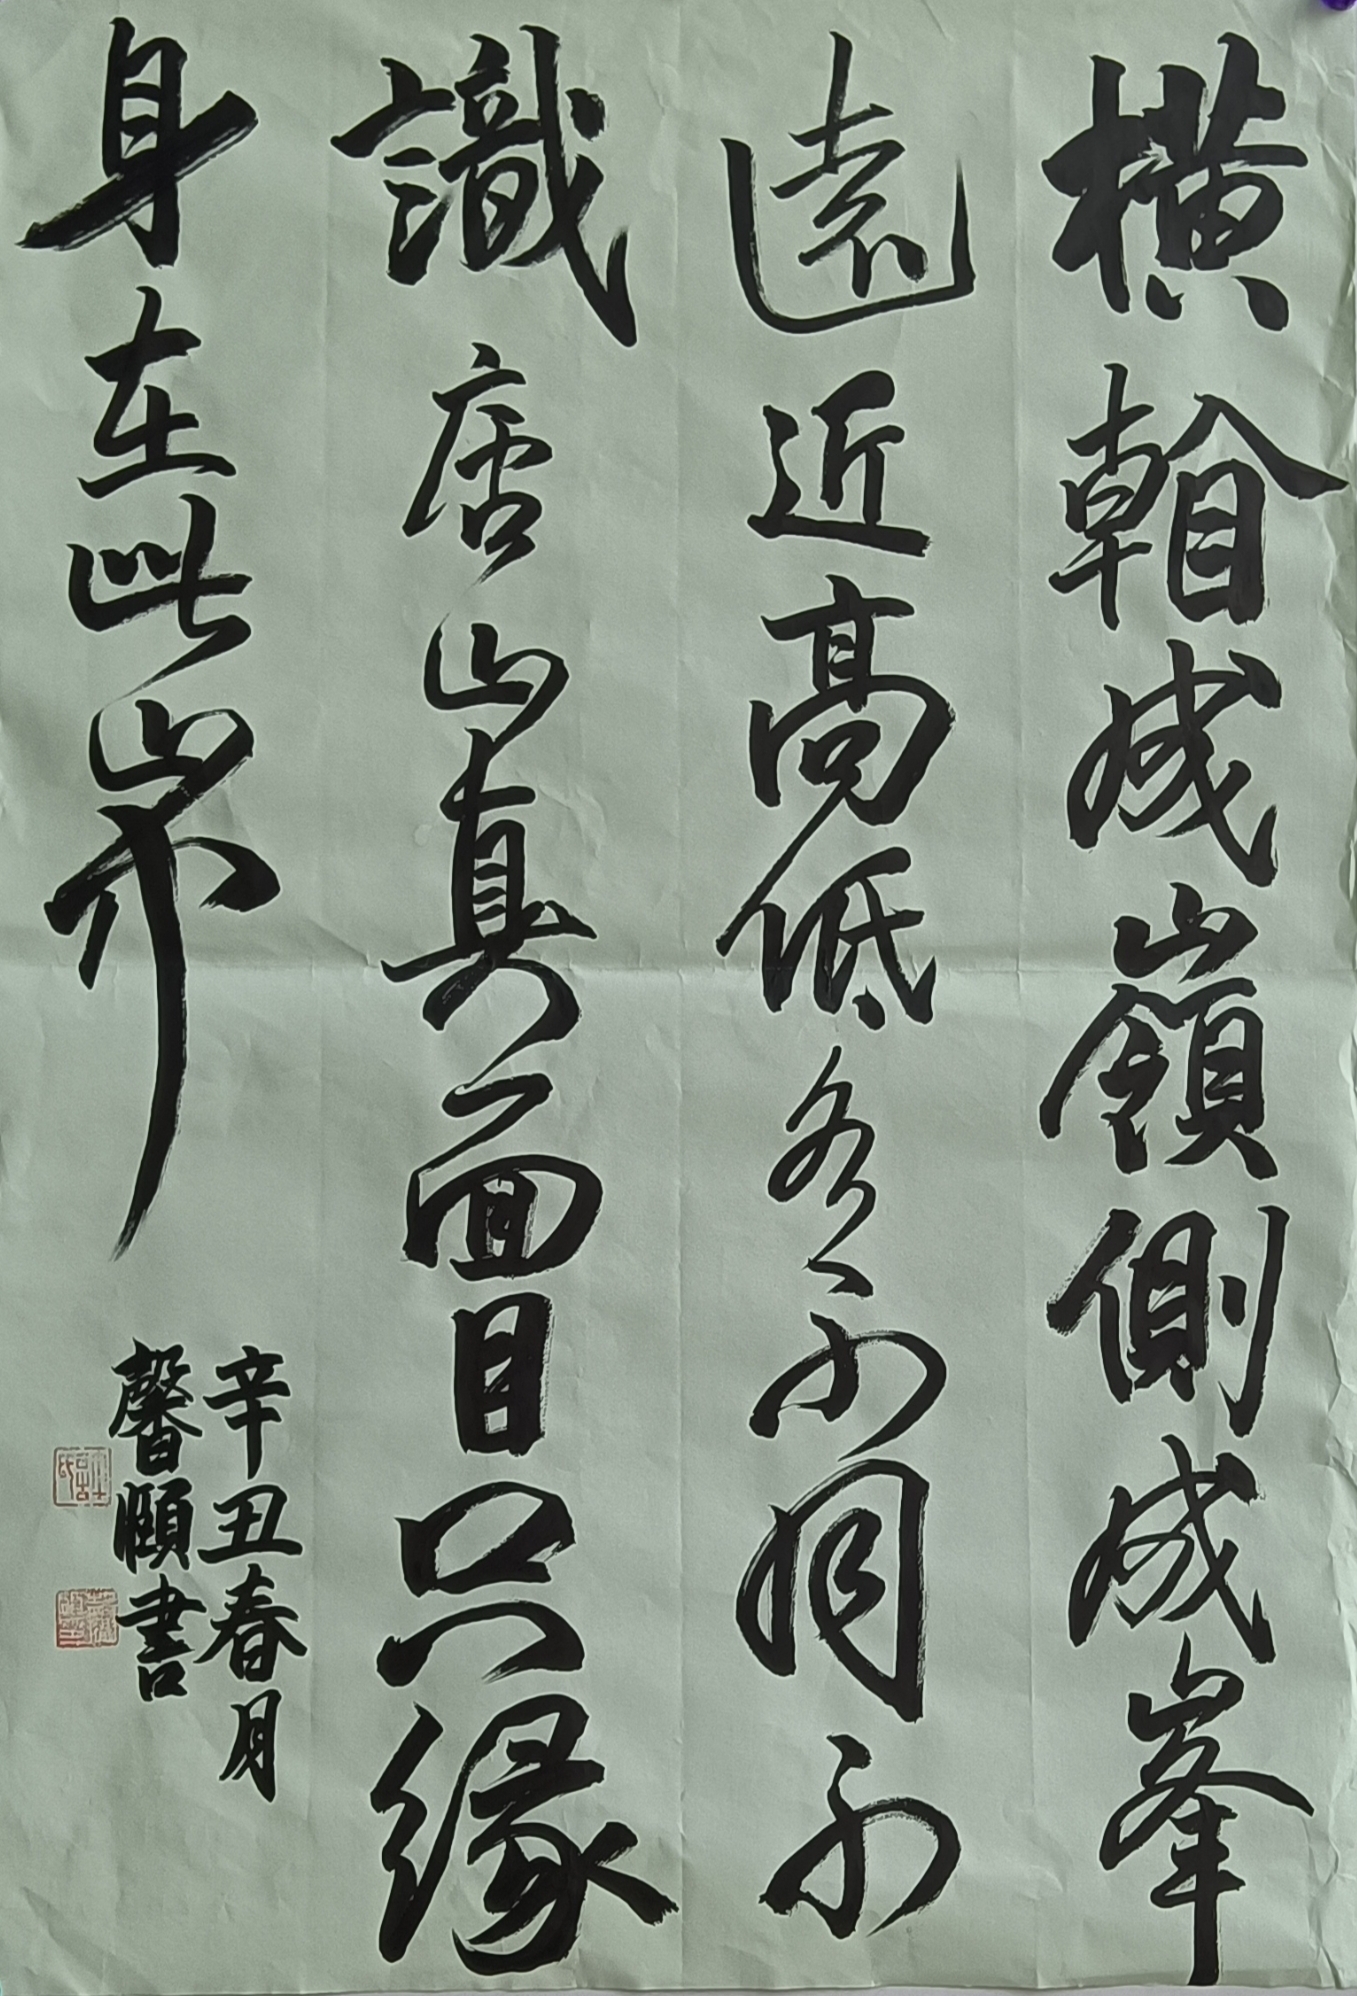 橫看成嶺側成峯
遠近高低各不同不
識廬山真面目只緣
身在此山中
辛丑春月
馨頤書